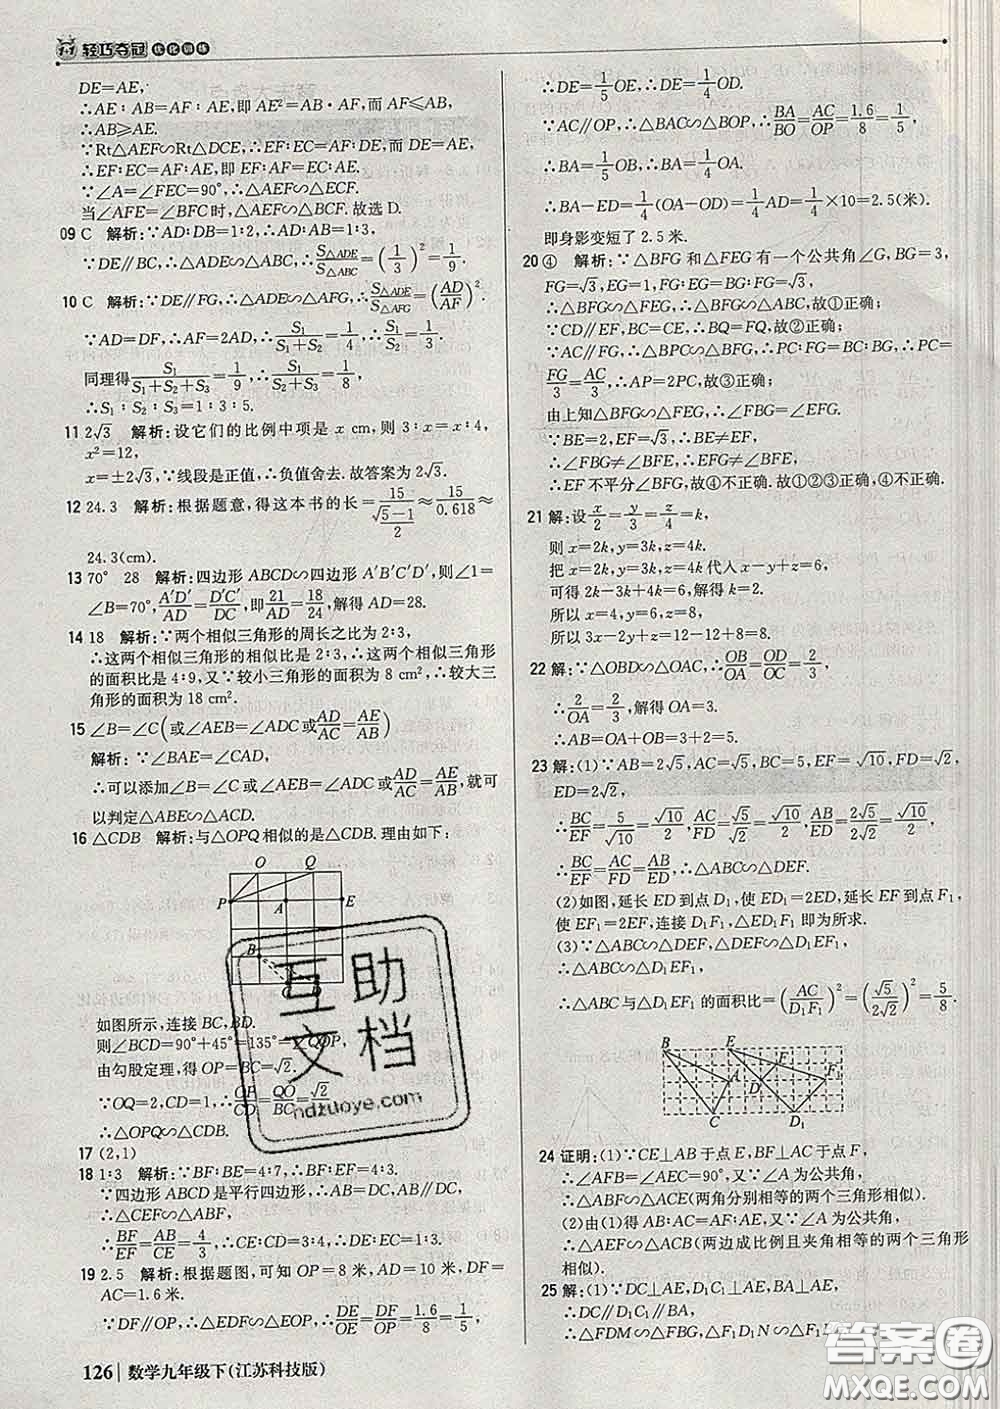 轻巧夺冠 优化训练
DE=AE,
∴AE∶AB=AF∶AE,即AE²=AB·AF,而AF≤AE,
∴AB≥AE.
∵Rt△AEF∽Rt△DCE,∴EF∶EC=AF∶DE,而DE=AE,
∴EF∶EC=AF∶AE,即EF∶AF=EC∶AE.
∵∠A=∠FEC=90°,∴△AEF∽△ECF.
当∠AFE=∠BFC时,△AEF∽△BCF.故选D.
09 C 解析:∵AD∶DB=1∶2,∴AD∶AB=1∶3,
∵DE∥BC,∴△ADE∽△ABC,∴S△ADE/S△ABC=(1/3)²=1/9.
10 C 解析:∵DE∥FG,∴△ADE∽△AFG,∴S△ADE/S△AFG=(AD/AF)².
∵AD=DF,∴AF=2AD,∴S₁/(S₁+S₂)=1/4,∴S₁/S₂=1/3.
同理得S₁/(S₁+S₂+S₃)=1/9,∴S₁/(S₂+S₃)=1/8,
∴S₁∶S₂∶S₃=1∶3∶5.
11 2√3 解析:设它们的比例中项是x cm,则3∶x=x∶4,
x²=12,
x=±2√3,∵线段是正值,∴负值舍去.故答案为2√3.
12 24.3 解析:根据题意,得这本书的长=15/((√5-1)/2)≈15/0.618≈
24.3(cm).
13 70° 28 解析:四边形ABCD∽四边形A′B′C′D′,则∠1=
∠B=70°,A′D′/AD=D′C′/DC,即21/AD=18/24,解得AD=28.
14 18 解析:∵两个相似三角形的周长之比为2∶3,
∴这两个相似三角形的相似比是2∶3,∴这两个相似三角形
的面积比是4∶9,又∵较小三角形的面积为8 cm²,∴较大三
角形的面积为18 cm².
15 ∠B=∠C(或∠AEB=∠ADC或AD/AC=AE/AB)
解析:∵∠BAE=∠CAD,
∴可以添加∠B=∠C或∠AEB=∠ADC或AD/AC=AE/AB,就可
以判定△ABE∽△ACD.
16 △CDB 解析:与△OPQ相似的是△CDB.理由如下:
O Q
P A E
B
C D
如图所示,连接BC,BD.
则∠BCD=90°+45°=135°=∠QOP,
由勾股定理,得OP=BC=√2.
∵OQ=2,CD=1,∴OP/CD=QO/BC=√2
∴△OPQ∽△CDB.
17 (2,1)
18 1∶3 解析:∵BF∶BE=4∶7,∴BF∶EF=4∶3,
∵四边形ABCD是平行四边形,∴AB=DC,AB∥DC,
∴△CEF∽△ABF,
∴BF/EF=AB/CE=4/3,∴CE∶CD=3∶4,∴DE∶EC=1∶3.
19 2.5 解析:根据题图,可知OP=8米,AD=10米,DF=
AC=1.6米.
∵DF∥OP,∴△DEF∽△OEP,∴DE/OE=DF/OP=1.6/8=1/5,
∴DE=1/5OE,∴DE=1/4OD.
∵AC∥OP,∴△BAC∽△BOP,∴BA/BO=AC/OP=1.6/8=1/5,
∴BA=1/5OB,∴BA=1/4OA.
∴BA-ED=1/4(OA-OD)=1/4AD=1/4×10=2.5(米).
即身影变短了2.5米.
20 ④ 解析:∵△BFG和△FEG有一个公共角∠G,BG=3,
FG=√3,EG=1,FG∶EG=BG∶FG,
∴△BFG∽△FEG,∴△BFG∽△ABC,故①正确;
∵CD∥EF,BC=CE,∴BQ=FQ,故②正确;
∵AC∥FG,∴△BPC∽△BFG,∴PC∶FG=BC∶BG,∴PC=
FG/3=AC/3,∴AP=2PC,故③正确;
由上知△BFG∽△FEG,∴∠FBG=∠EFG.
∵BE=2,EF=√3,∴BE≠EF,
∴∠FBG≠∠BFE,∴∠EFG≠∠BFE,
∴EF不平分∠BFG,故④不正确.故①②③正确,④不正确.
21 解:设x/2=y/3=z/4=k,
则x=2k,y=3k,z=4k.
把x=2k,y=3k,z=4k代入x-y+z=6,
可得2k-3k+4k=6,解得k=2.
所以x=4,y=6,z=8.
所以3x-2y+z=12-12+8=8.
22 解:∵△OBD∽△OAC,∴OB/OA=OD/OC=2/3,
∴2/OA=2/3,解得OA=3.
∴AB=OA+OB=3+2=5.
23 解:(1)∵AB=2√5,AC=√5,BC=5,EF=√10,FD=√2,
ED=2√2,
∴BC/EF=5/√10=√10/2,AC/FD=√5/√2=√10/2,AB/ED=2√5/2√2=√10/2,
∴BC/EF=AC/FD=AB/ED,∴△ABC∽△DEF.
(2)如图,延长ED到点D₁,使ED₁=2ED,延长EF到点F₁,
使EF₁=2EF,连接D₁F₁,△ED₁F₁即为所求.
(3)∵△ABC∽△DEF∽△D₁EF₁,
∴△ABC∽△D₁EF₁,
∴△ABC与△D₁EF₁的面积比=(AC/D₁F₁)²=(√5/2√2)²=5/8.
B E
F
A D F₁
C D₁
24 证明:(1)∵CE⊥AB于点E,BF⊥AC于点F,
∴∠AFB=∠AEC=90°,又∵∠A为公共角,
∴△ABF∽△ACE(两角分别相等的两个三角形相似).
(2)由(1)得AB∶AC=AF∶AE,又∵∠A为公共角,
∴△AEF∽△ACB(两边成比例且夹角相等的两个三角形
相似).
25 解:(1)∵DC⊥AE,D₁C₁⊥AE,BA⊥AE,
∴DC∥D₁C₁∥BA,
∴△FDM∽△FBG,△F₁D₁N∽△F₁BG.
126 数学九年级下(江苏科技版)
互助
文档
hdzuoye.com
答案圈
MXQE.COM